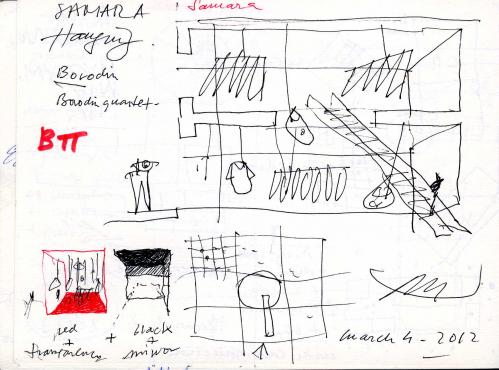 SAMARA
Samara
Hanging.
Borodin
Borodin quartet
Bπ
red
+
transparency
+
black
+
mirror
march 4 - 2012